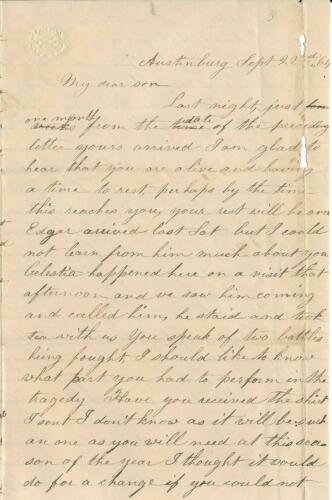 3
Austinburg Sept 22nd, 64
My dear son
Last night, just
one month from the date of the preceding
letter yours arrived I am glad to
hear that you are alive and having
a time to rest, perhaps by the time
this reaches you, your rest will be over
Edgar arrived last Sat but I could
not learn from him much about you
Celestia happened here on a visit that
afternoon and we saw him coming
and called him, he staid and took
tea with us You speak of two battles
being fought, I should like to know
what part you had to perform in the
tragedy Have you received the shirt
I sent I don't know as it will be such
an one as you will need at this sea-
son of the year I thought it would
do for a change if you could not